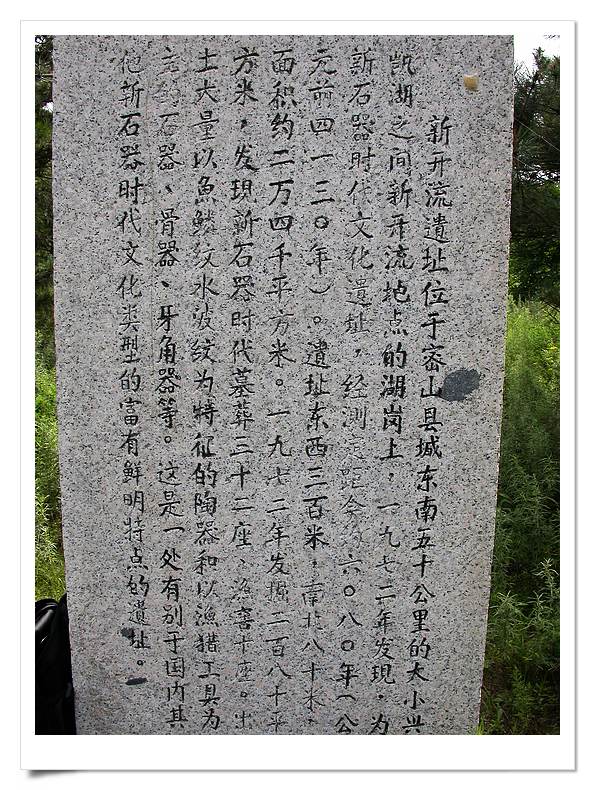 新开流遺址位于密山县城东南五十公里的大小兴
凯湖之间新开流地点的湖岗上，一九七二年发現，为
新石器时代文化遺址，经測定距今约六〇八〇年（公
元前四一三〇年）。遺址东西三百米，南北八十米，
面积约二万四千平方米。一九七二年发掘二百八十平
方米，发現新石器时代墓葬三十二座、漁窖十座。出
土大量以魚鱗纹水波纹为特征的陶器和以漁猎工具为
主的石器、骨器、牙角器等。这是一处有别于国内其
他新石器时代文化类型的富有鮮明特点的遺址。